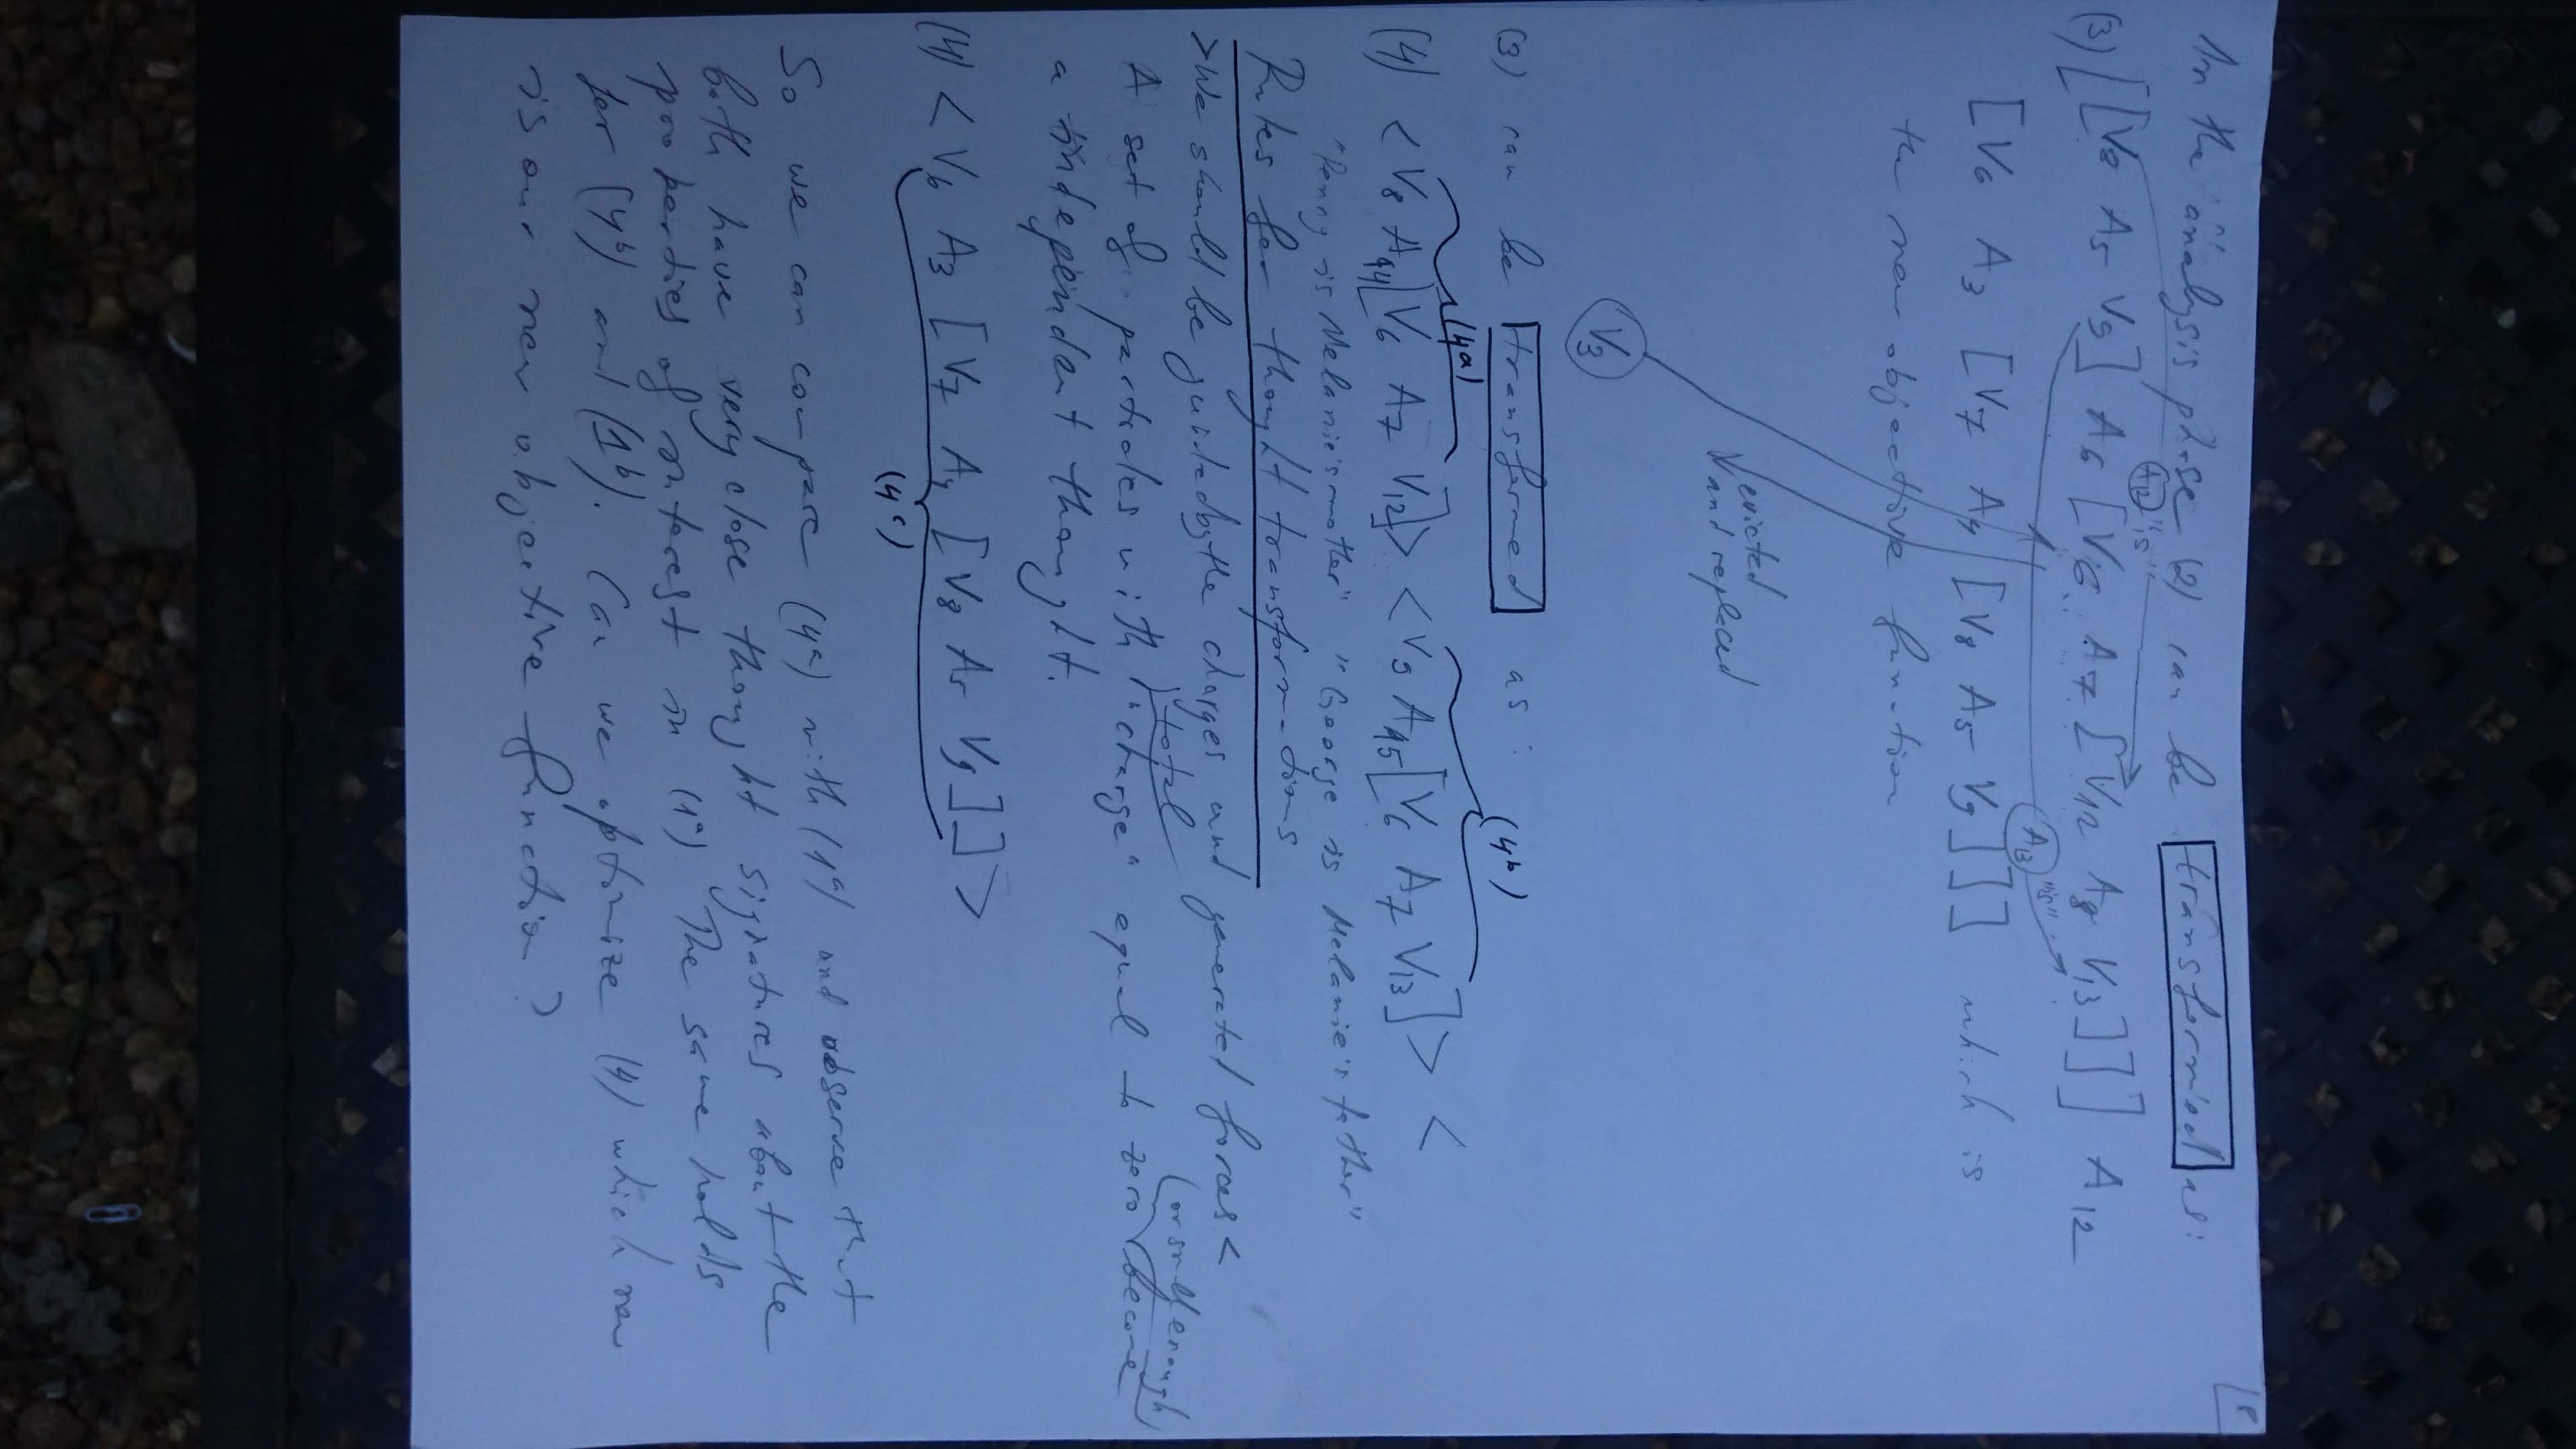 18
In the "analysis phase" (2) can be transformed as:
(3) [[V8 A5 V9] A6 [V6 A7 [V12 A8 V13]]] A12
A12 "is"
A13 "is"
[V6 A3 [V7 A4 [V8 A5 V9]]] which is
the new objective function
V evicted
and replaced
V3
(3) can be transformed as:
(4a) (4b)
(4) <V8 A14 [V6 A7 V12]> <V9 A15 [V6 A7 V13]> <
"Penny is Melanie's mother" "George is Melanie's father"
Rules for thought transformations
>We should be guided by the charges and generated forces<
A set of particles with total "charge" equal to zero (or small enough) become
a independent thought.
(4) <V6 A3 [V7 A4 [V8 A5 V9]]>
(4c)
So we can compare (4a) with (1a) and observe that
both have very close thought signatures about the
properties of interest in (1a). The same holds
for (4b) and (1b). Can we optimize (4) which now
is our new objective function?